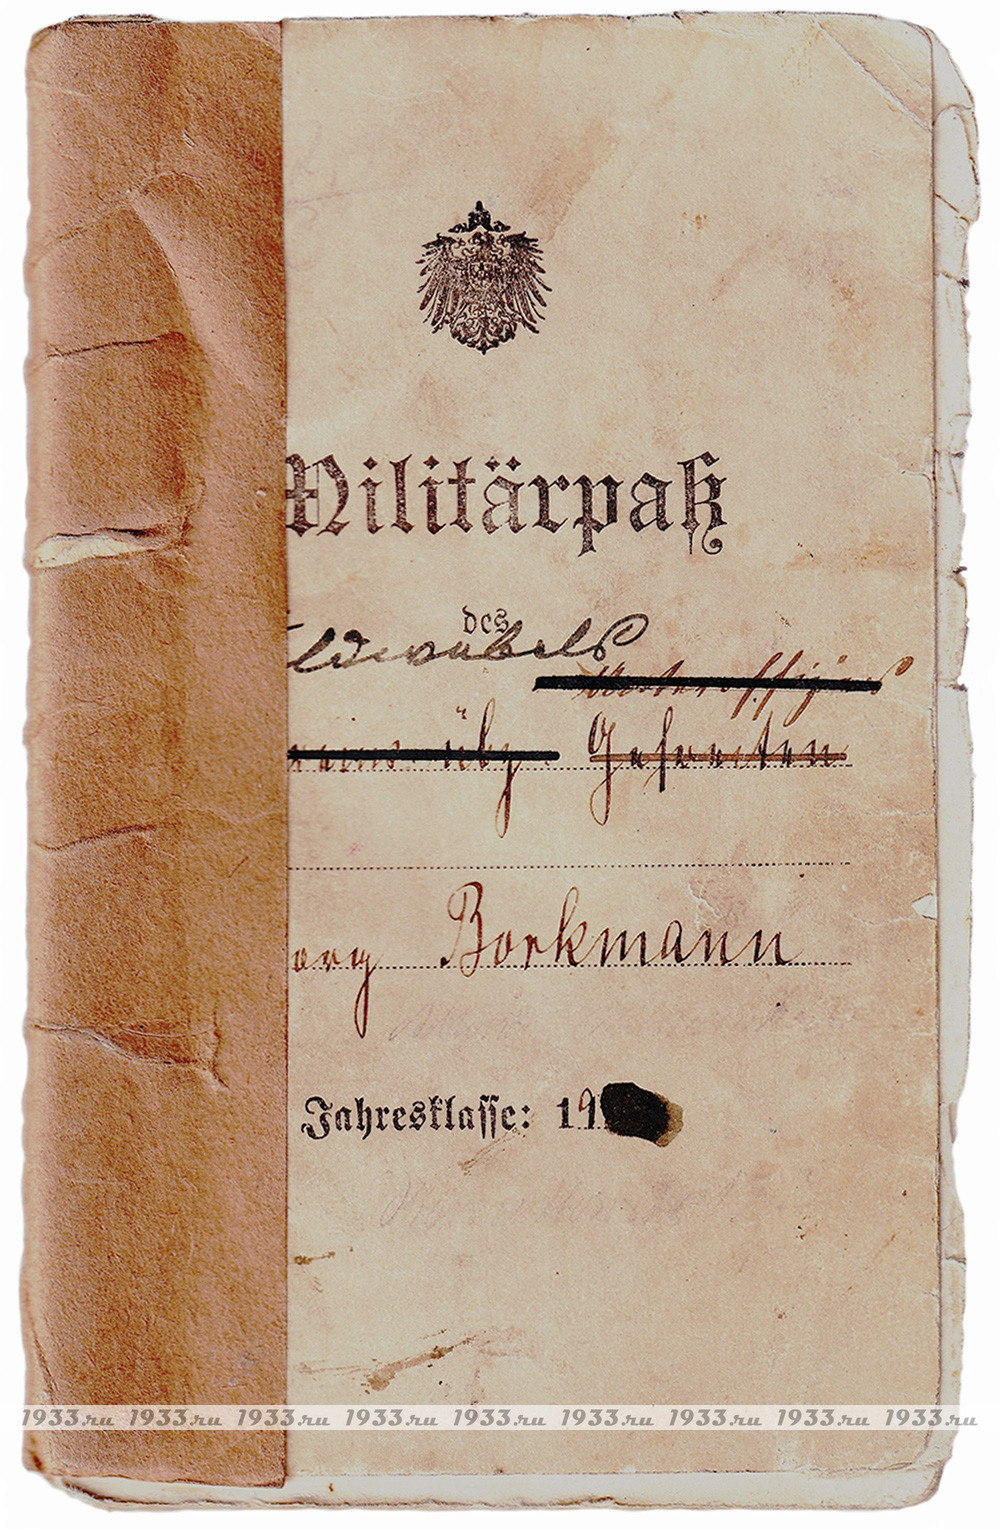 Militärpaß
des
ldwebels
Unteroffiziers
übz Gefreiten
org Borkmann
Jahresklasse: 19
1933.ru 1933.ru 1933.ru 1933.ru 1933.ru 1933.ru 1933.ru 1933.ru 1933.ru